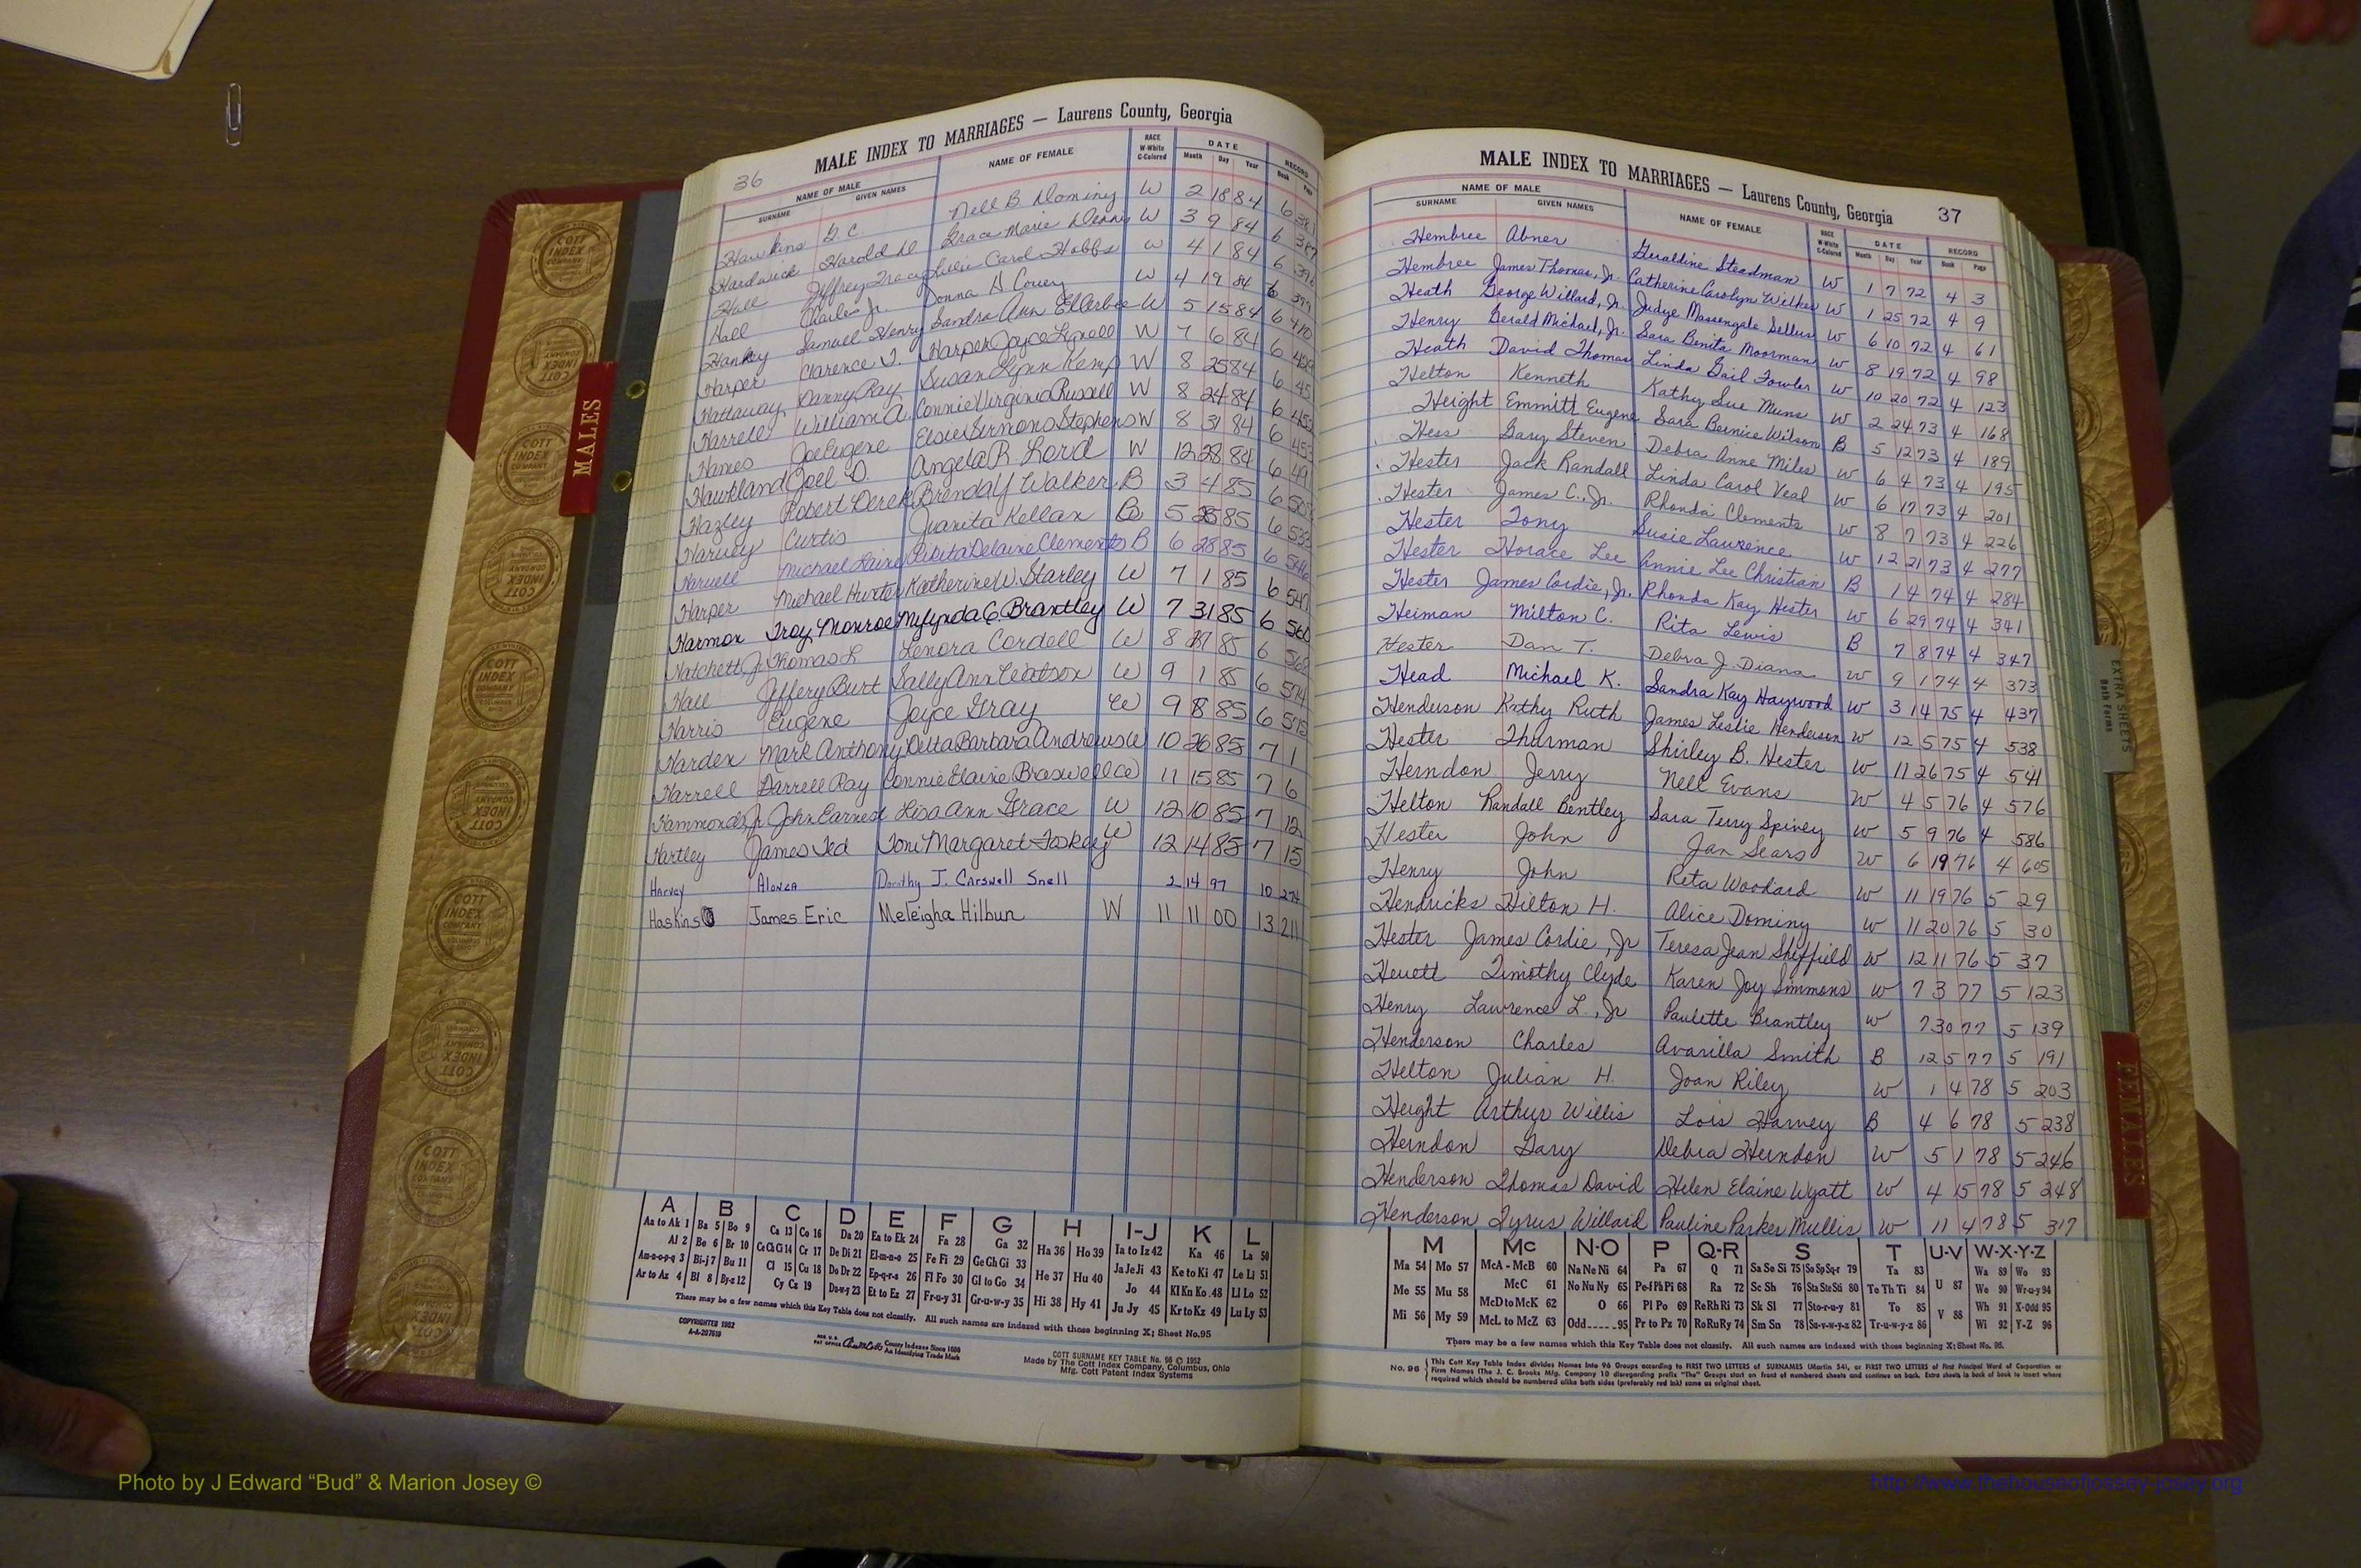 36
MALE INDEX TO MARRIAGES — Laurens County, Georgia
NAME OF MALE
SURNAME GIVEN NAMES NAME OF FEMALE RACE W-White C-Colored DATE Month Day Year RECORD Book Page
Hawkins G C. Nell B Dominy W 2 18 84 6 381
Hardwick Harold D Grace Marie W 3 9 84 6 387
Hall Jeffrey Tracy Lillie Carol Hobbs W 4 1 84 6
Hall Charles Jr. Donna H Covey W 4 19 84 6 399
Hankey Samuel Henry Sandra Ann Ellerbee W 5 15 84 6 410
Harper Clarence J. Harper Joyce W 7 6 84 6
Hattaway Danny Ray Susan Lynn Kemp W 8 25 84 6
Harrell William A. Connie Virginia Russell W 8 24 84 6 453
Hanes Joe Eugene Elsie Sirmons Stephens W 8 31 84 6 453
Hawkland Joel D. Angela R Lord W 12 28 84 6
Hazley Robert Derek Brenda Y Walker B 3 4 85 6
Harvey Curtis Juanita Kellam B 5 85 6 533
Harvell Michael Delaine Clements B 6 28 85 6 546
Harper Michael Hunter Katherine W. Starley W 7 1 85 6 547
Harmon Troy Monroe Mylynda C. Brantley W 7 31 85 6 560
Hatchett, Jr. Thomas L Lenora Cordell W 8 85 6 568
Hall Jeffery Burt Sally Ann Watson W 9 1 85 6 574
Harris Eugene Joyce Gray W 9 8 85 6 575
Harden Mark Anthony Delta Barbara Andrews W 10 26 85 7 1
Harrell Darrell Ray Connie Elaine Braswell W 11 15 85 7 6
Hammonds, Jr. John Earnest Lisa Ann Grace W 12 10 85 7 12
Hartley James Ted Toni Margaret Foskey W 12 14 85 7 15
Harvey Alonza Dorothy J. Carswell Snell 2 14 97 10 274
Haskins James Eric Meleigha Hilbun W 11 11 00 13 211
MALES
A B C D E F G H I-J K L
Aa to Ak 1 Ba 5 Bo 9 Ca 13 Co 16 Da 20 Ea to Ek 24 Fa 28 Ga 32 Ha 36 Ho 39 Ia to Iz 42 Ka 46 La 50
Al 2 Be 6 Br 10 Ce Ch Ci 14 Cr 17 De Di 21 El-m-n-o 25 Fe Fi 29 Ge Gh Gi 33 He 37 Hu 40 Ja Je Ji 43 Ke to Ki 47 Le Li 51
Am-n-o-p-q 3 Bi-j 7 Bu 11 Cl 15 Cu 18 Do Dr 22 Ep-q-r-s 26 Fl Fo 30 Gl to Go 34 Hi 38 Hy 41 Jo 44 Kl Kn Ko 48 Ll Lo 52
Ar to Az 4 Bl 8 By-z 12 Cy Cz 19 Du-w-y 23 Et to Ez 27 Fr-u-y 31 Gr-u-w-y 35 Ju Jy 45 Kr to Kz 49 Lu Ly 53
There may be a few names which this Key Table does not classify. All such names are indexed with those beginning X; Sheet No.95
COPYRIGHTED 1952
A-A-207619
County Indexes Since 1888
An Identifying Trade Mark
COTT SURNAME KEY TABLE No. 96 © 1952
Made by The Cott Index Company, Columbus, Ohio
Mfg. Cott Patent Index Systems
MALE INDEX TO MARRIAGES — Laurens County, Georgia 37
NAME OF MALE
SURNAME GIVEN NAMES NAME OF FEMALE RACE W-White C-Colored DATE Month Day Year RECORD Book Page
Hembree Abner Geraldine Steadman W 1 7 72 4 3
Hembree James Thomas, Jr. Catherine Carolyn Wilkes W 1 25 72 4 9
Heath George Willard, Jr. Judye Massengale Sellers W 6 10 72 4 61
Henry Gerald Michael, Jr. Sara Benita Moorman W 8 19 72 4 98
Heath David Thomas Linda Gail Fowler W 10 20 72 4 123
Helton Kenneth Kathy Sue Munn W 2 24 73 4 168
Height Emmitt Eugene Sara Bernice Wilson B 5 12 73 4 189
Hess Gary Steven Debra Anne Miles W 6 4 73 4 195
Hester Jack Randall Linda Carol Veal W 6 17 73 4 201
Hester James C., Jr. Rhonda Clements W 8 7 73 4 226
Hester Tony Susie Laurence W 12 21 73 4 277
Hester Horace Lee Annie Lee Christian B 1 4 74 4 284
Hester James Cordie, Jr. Rhonda Kay Hester W 6 29 74 4 341
Heiman Milton C. Rita Lewis B 7 8 74 4 347
Hester Dan T. Debra J. Diana W 9 1 74 4 373
Head Michael K. Sandra Kay Haywood W 3 14 75 4 437
Henderson Kathy Ruth James Leslie Henderson W 12 5 75 4 538
Hester Thurman Shirley B. Hester W 11 26 75 4 541
Herndon Jerry Nell Evans W 4 5 76 4 576
Helton Randall Bentley Sara Terry Spivey W 5 9 76 4 586
Hester John Jan Sears W 6 19 76 4 605
Henry John Rita Woodard W 11 19 76 5 29
Hendricks Hilton H. Alice Dominy W 11 20 76 5 30
Hester James Cordie, Jr Teresa Jean Sheffield W 12 11 76 5 37
Hewett Timothy Clyde Karen Joy Simmons W 7 3 77 5 123
Henry Lawrence L., Jr Paulette Brantley W 7 30 77 5 139
Henderson Charles Avarilla Smith B 12 5 77 5 191
Helton Julian H. Joan Riley W 1 4 78 5 203
Height Arthur Willis Lois Harvey B 4 6 78 5 238
Herndon Gary Debra Herndon W 5 1 78 5 246
Henderson Thomas David Helen Elaine Wyatt W 4 15 78 5 248
Henderson Tyrus Willard Pauline Parker Mullis W 11 4 78 5 317
M Mc N-O P Q-R S T U-V W-X-Y-Z
Ma 54 Mo 57 McA - McB 60 Na Ne Ni 64 Pa 67 Q 71 Sa Se Si 75 So Sp Sq-r 79 Ta 83 U 87 Wa 89 Wo 93
Me 55 Mu 58 McC 61 No Nu Ny 65 Pe-f Ph Pi 68 Ra 72 Sc Sh 76 Sta Ste Sti 80 Te Th Ti 84 V 88 We 90 Wr-u-y 94
Mi 56 My 59 McD to McK 62 O 66 Pl Po 69 Re Rh Ri 73 Sk Sl 77 Sto-r-u-y 81 To 85 Wh 91 X-Odd 95
McL to McZ 63 Odd 95 Pr to Pz 70 Ro Ru Ry 74 Sm Sn 78 Su-v-w-y-z 82 Tr-u-w-y-z 86 Wi 92 Y-Z 96
There may be a few names which this Key Table does not classify. All such names are indexed with those beginning X; Sheet No. 95.
No. 96 This Cott Key Table Index divides Names into 96 Groups according to FIRST TWO LETTERS of SURNAMES (Martin 54), or FIRST TWO LETTERS of First Principal Word of Corporation or
Firm Names (The J. C. Brooks Mfg. Company 10 disregarding prefix "The" Groups start on front of numbered sheets and continue on back. Extra sheets in back of book to insert where
required which should be numbered alike both sides (preferably red ink) same as original sheet.
EXTRA SHEETS
Both Forms
FEMALES
COTT INDEX COMPANY
Photo by J Edward “Bud” & Marion Josey ©
http://www.thehouseofjossey-josey.org